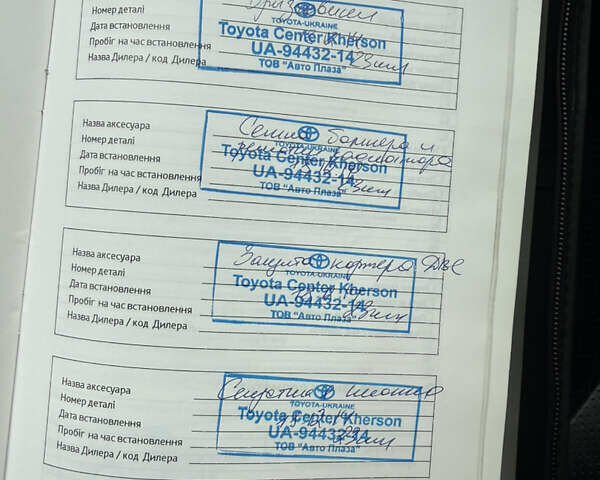 Номер деталі
Дата встановлення
Пробіг на час встановлення
Назва Дилера / код Дилера
TOYOTA-UKRAINE
Toyota Center Kherson
UA-94432-14
ТОВ "Авто Плаза"
23км
Назва аксесуара
Номер деталі
Дата встановлення
Пробіг на час встановлення
Назва Дилера / код Дилера
бампера и
радиатора
TOYOTA-UKRAINE
Toyota Center Kherson
UA-94432-14
ТОВ "Авто Плаза"
23км
Назва аксесуара
Номер деталі
Дата встановлення
Пробіг на час встановлення
Назва Дилера / код Дилера
Защита картера ДВС
TOYOTA-UKRAINE
Toyota Center Kherson
UA-94432-14
ТОВ "Авто Плаза"
23км
Назва аксесуара
Номер деталі
Дата встановлення
Пробіг на час встановлення
Назва Дилера / код Дилера
TOYOTA-UKRAINE
Toyota Center Kherson
UA-94432-14
ТОВ "Авто Плаза"
23км